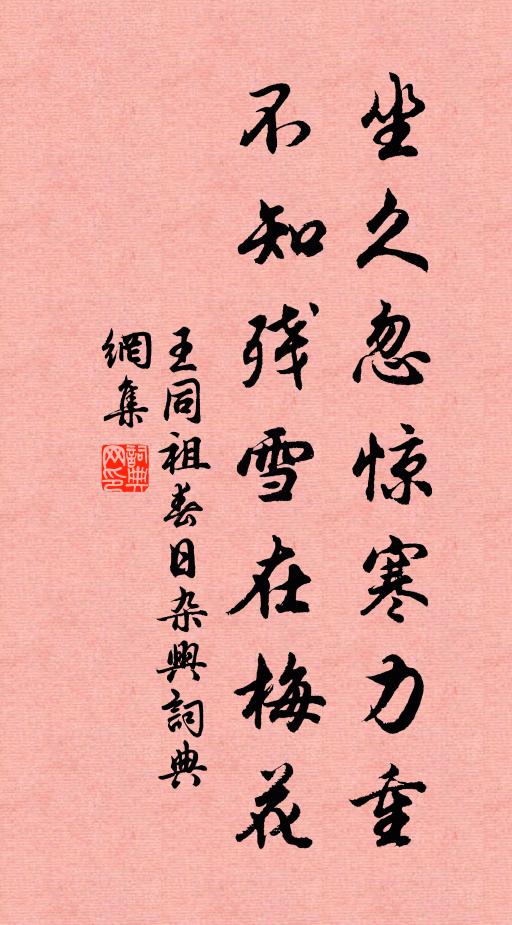 坐久忽惊寒力重
不知残雪在梅花
王同祖春日杂興詞典
網集
詞典网印